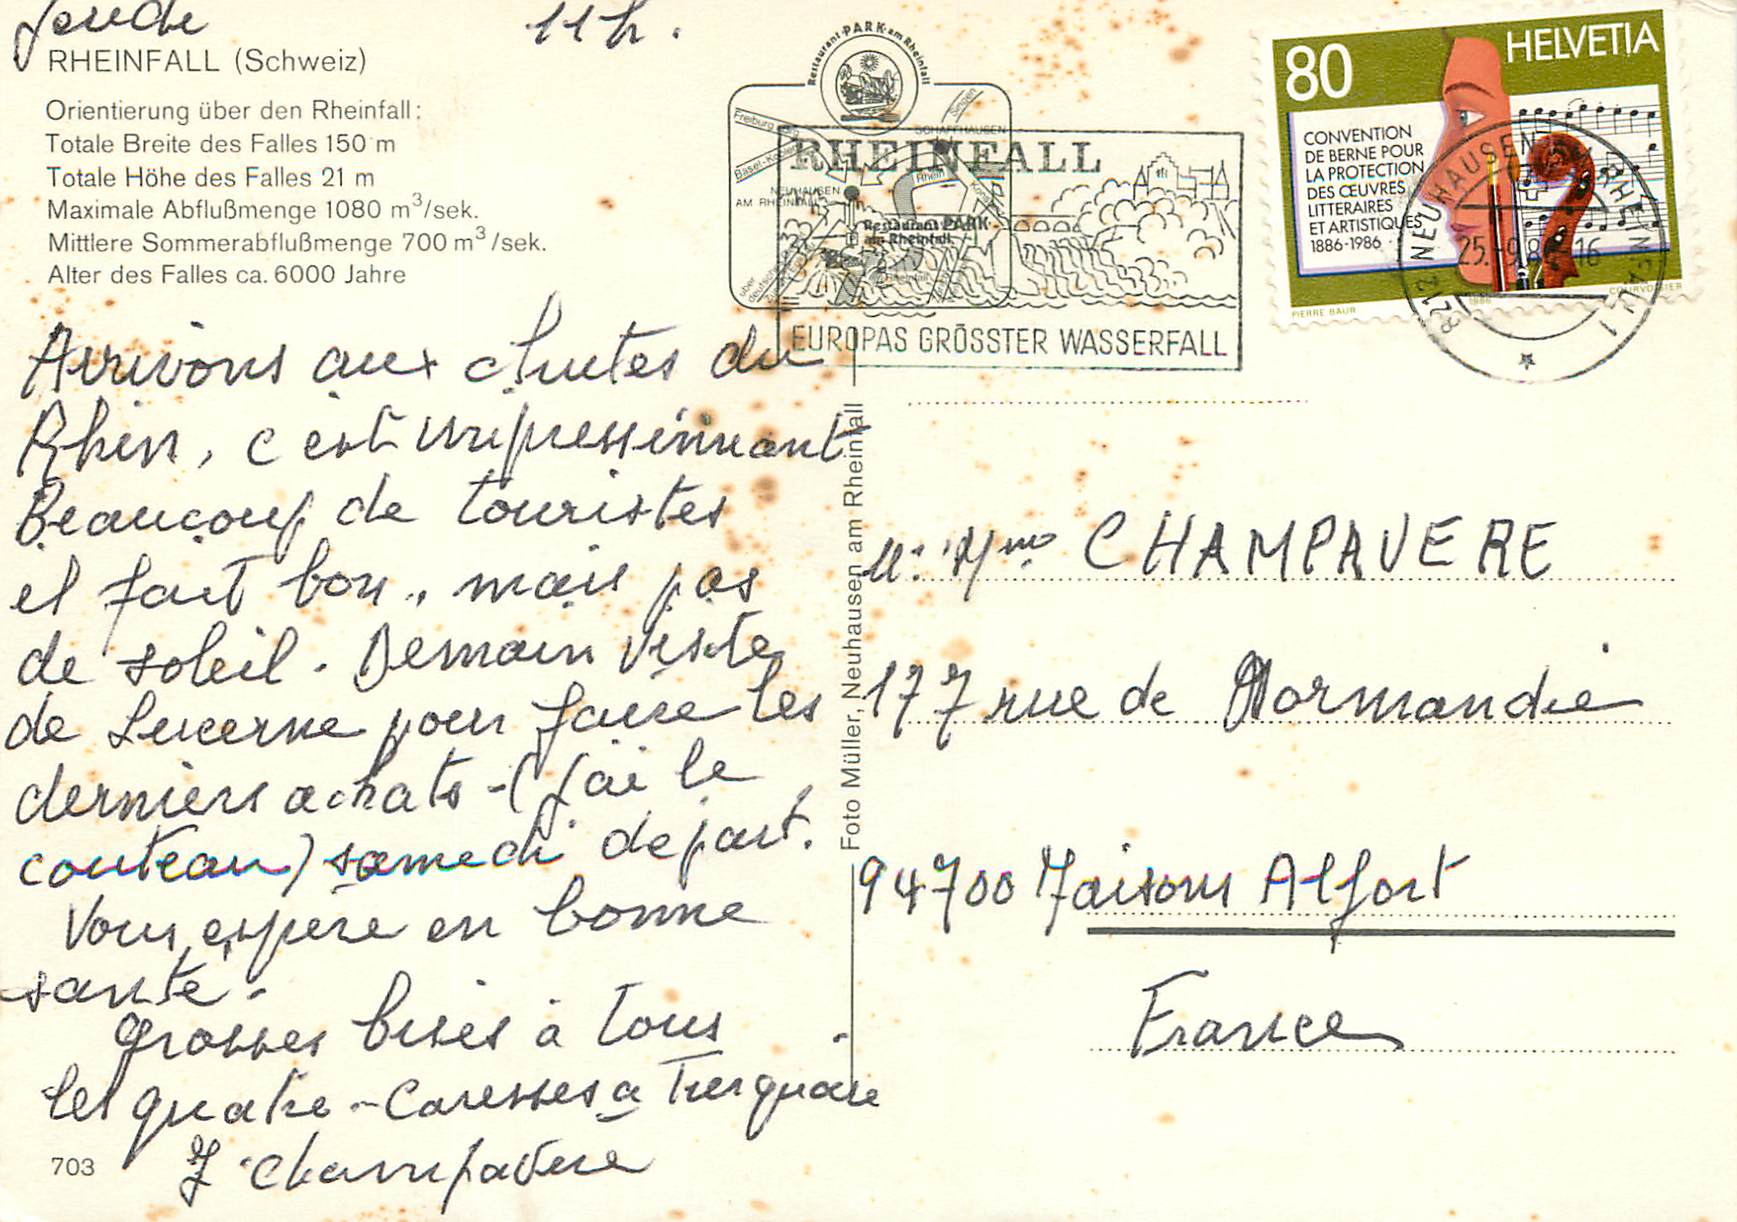 Jeudi 11h.
RHEINFALL (Schweiz)
Orientierung über den Rheinfall:
Totale Breite des Falles 150 m
Totale Höhe des Falles 21 m
Maximale Abflußmenge 1080 m³/sek.
Mittlere Sommerabflußmenge 700 m³/sek.
Alter des Falles ca. 6000 Jahre
Arrivons aux chutes du
Rhin, c'est impressionnant
Beaucoup de touristes
il fait bon, mais pas
de soleil. Demain visite
de Lucerne pour faire les
derniers achats - (j'ai le
couteau) samedi départ.
Vous espère en bonne
santé.
Grosses bises à tous
les quatre - Caresses à Turquoise
J Champavere
703
Foto Müller, Neuhausen am Rheinfall
Restaurant PARK am Rheinfall
Freiburg
Singen
SCHAFFHAUSEN
NEUHAUSEN
AM RHEINFALL
Rhein
Restaurant PARK
am Rheinfall
RHEINFALL
EUROPAS GRÖSSTER WASSERFALL
80
HELVETIA
CONVENTION
DE BERNE POUR
LA PROTECTION
DES ŒUVRES
LITTERAIRES
ET ARTISTIQUES
1886-1986
PIERRE BAUR
1986
COURVOISIER
8212 NEUHAUSEN AM RHEINFALL 1
25.-9.86 16
M. Mme CHAMPAVERE
177 rue de Normandie
94700 Maisons Alfort
France